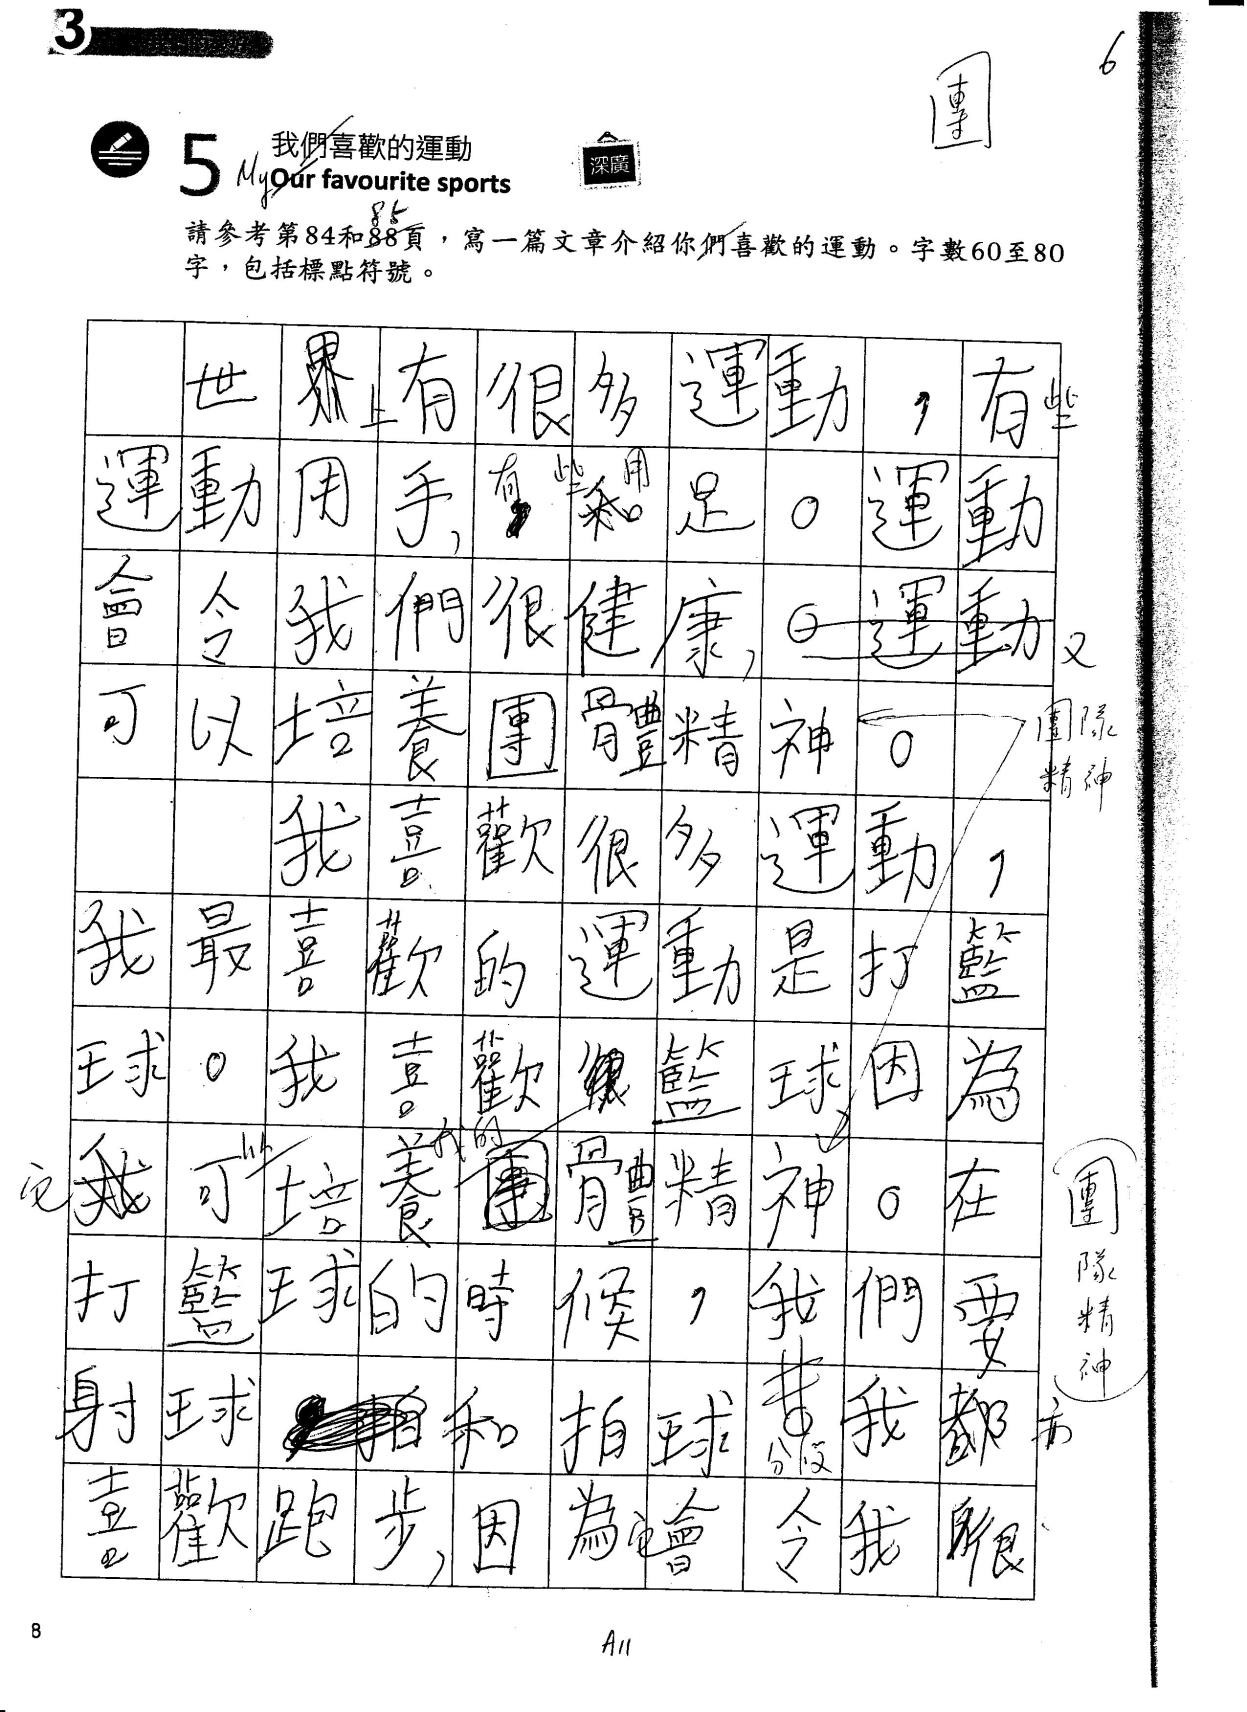 3
6
團
5 我們喜歡的運動
My Our favourite sports
深廣
85
請參考第84和88頁，寫一篇文章介紹你們喜歡的運動。字數60至80
字，包括標點符號。
世界上有很多運動，有些
運動用手，有些用和足。運動
會令我們很健康，。運動又
可以培養團體精神。
團隊
精神
我喜歡很多運動，
我最喜歡的運動是打籃
球。我喜歡籃球因為
它我可以培養我的團體精神。在
團隊精神
打籃球的時候，我們要
射球拍和拍球
我都亦
喜歡跑步，因為它會令我很
8
A11